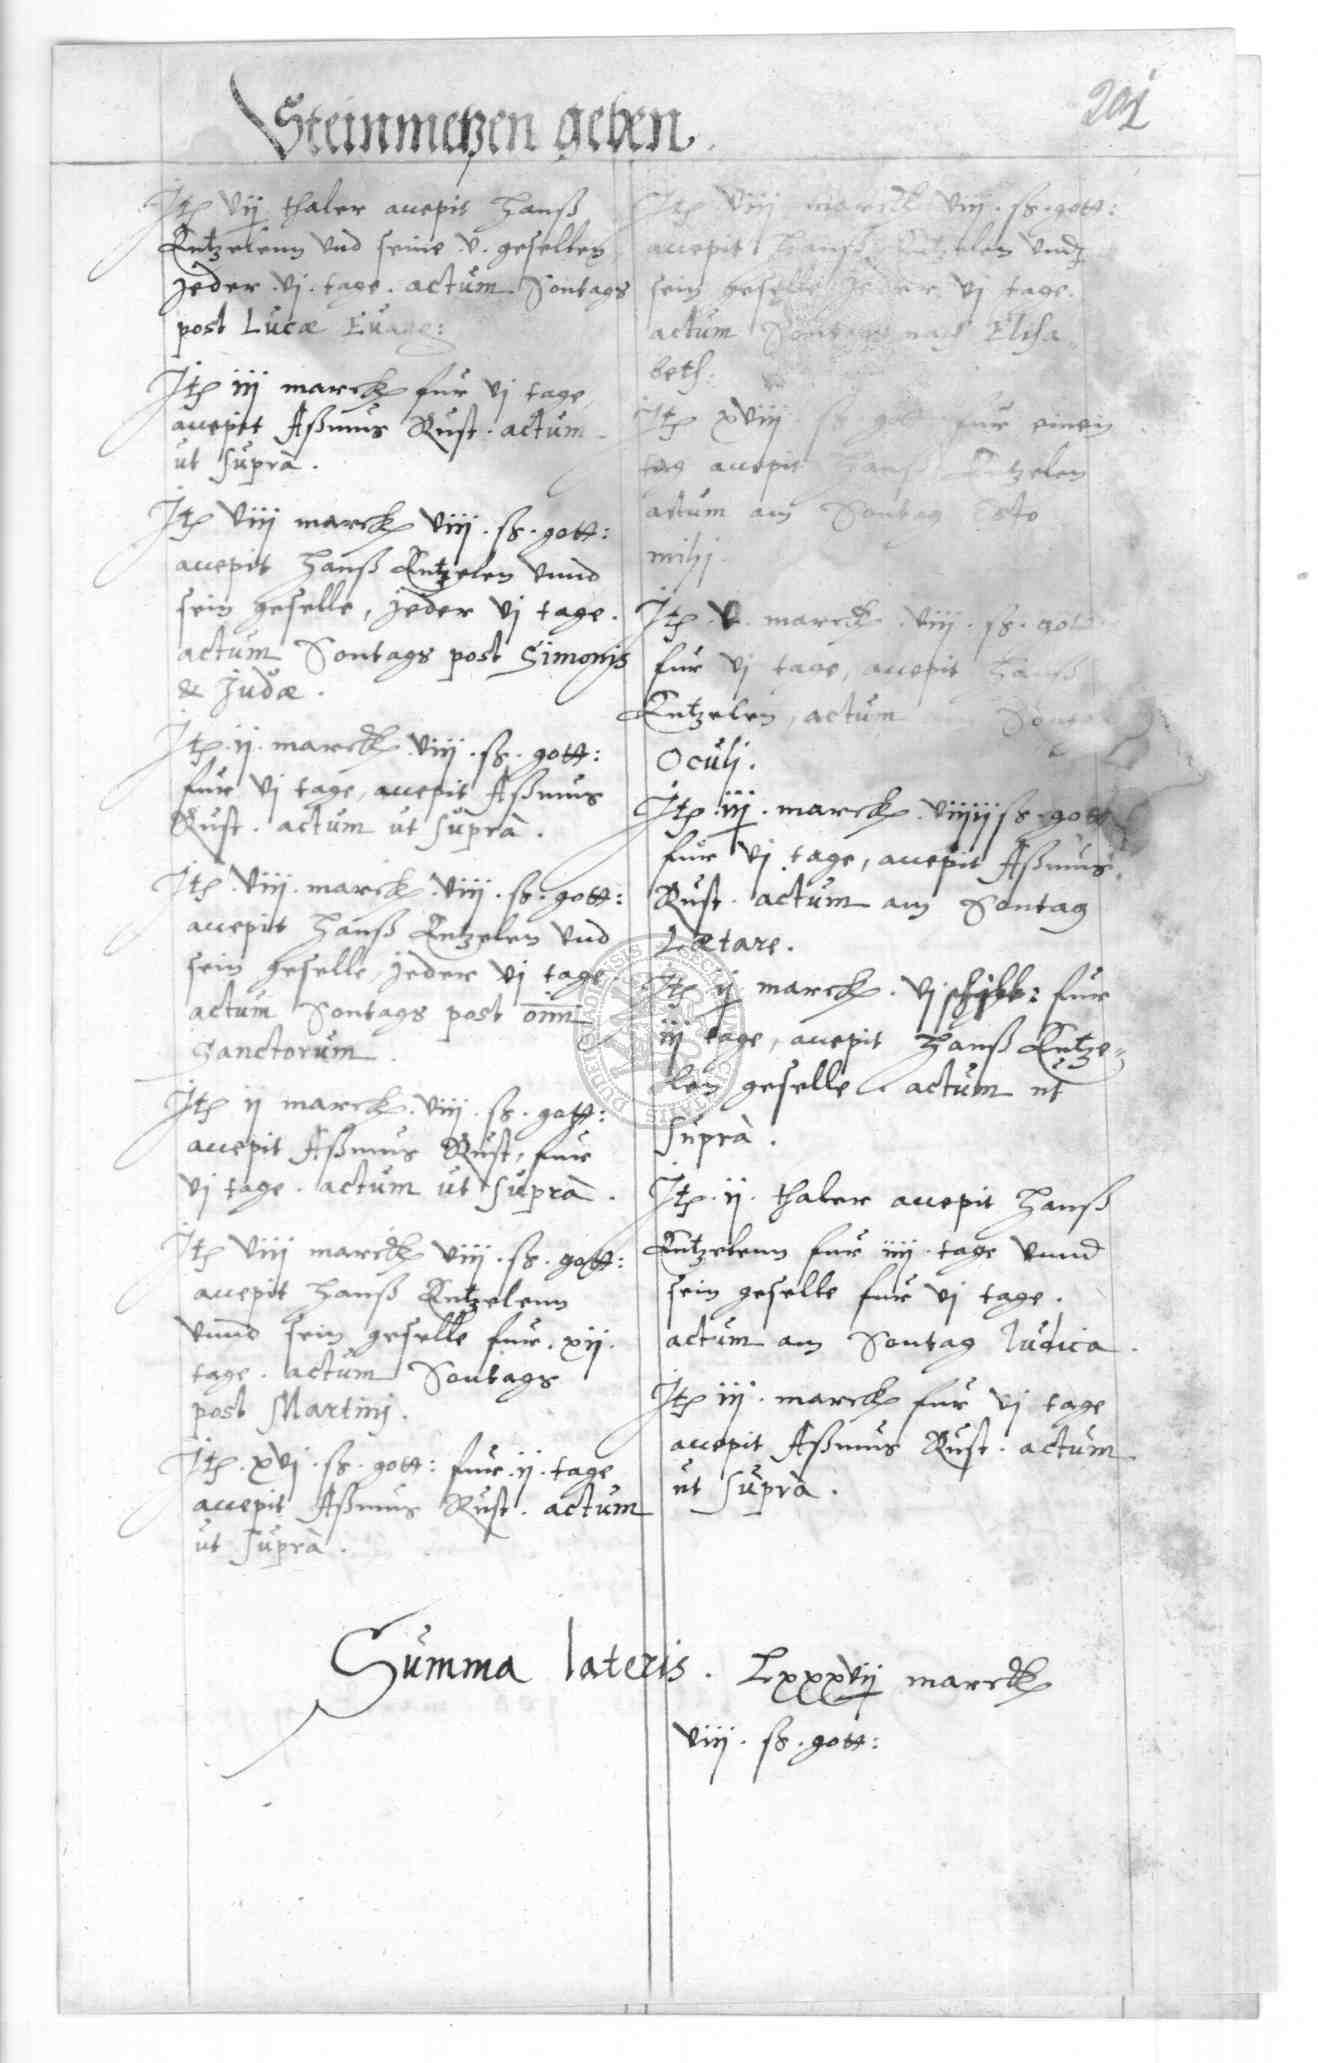 Steinmetzen geben.
201
Itē vij thaler accepit Hanß
Entzelenn vnd seine .v. gesellen
Jeder .vj. tage. actum Sontags
post Lucæ Euang:
Itē iij marck fur vj tage
accepit Aßmus Rust. actum
ut supra.
Itē viij marck viij. ß. gott:
accepit Hanß Entzelen vnnd
sein geselle, Jeder vj tage.
actum Sontags post Simonis
& Judæ.
Itē .ij. marck viij. ß. gott:
fur vj tage, accepit Aßmus
Rust. actum ut supra.
Itē .viij. marck .viij. ß. gott:
accepit Hanß Entzelen vnd
sein geselle, Jeder vj tage.
actum Sontags post oīm
Sanctorum.
Itē ij marck. viij. ß. gott:
accepit Aßmus Rust, fur
vj tage. actum ut supra.
Itē viij marck viij. ß. gott:
accepit Hanß Entzelenn
vnnd sein geselle fur. xij.
tage. actum Sontags
post Martinj.
Itē. xvj. ß. gott: fur .ij. tage
accepit Aßmus Rust. actum
ut supra.
Itē viij marck viij. ß. gott:
accepit Hanß Entzelen vnd
sein geselle Jeder vj tage.
actum Sontags nach Elisa
beth:
Itē xviij ß gott fur einen
tag accepit Hanß Entzelen
actum am Sontag Esto
mihj.
Itē .v. marck .viij. ß. gott
fur vj tage, accepit Hanß
Entzelen, actum am Sontag
Oculj.
Itē .iij. marck. ß. gott
fur vj tage, accepit Aßmus
Rust. actum am Sontag
Lætare.
Itē ij marck. vj schill: fur
iij tage, accepit Hanß Entze-
len geselle. actum ut
supra.
Itē .ij. thaler accepit Hanß
Entzelenn fur iiij tage vnnd
sein geselle fur vj tage.
actum am Sontag Iudica.
Itē iij. marck fur vj tage
accepit Aßmus Rust. actum
ut supra.
Summa lateris. Lxxxvij marck
viij. ß. gott: